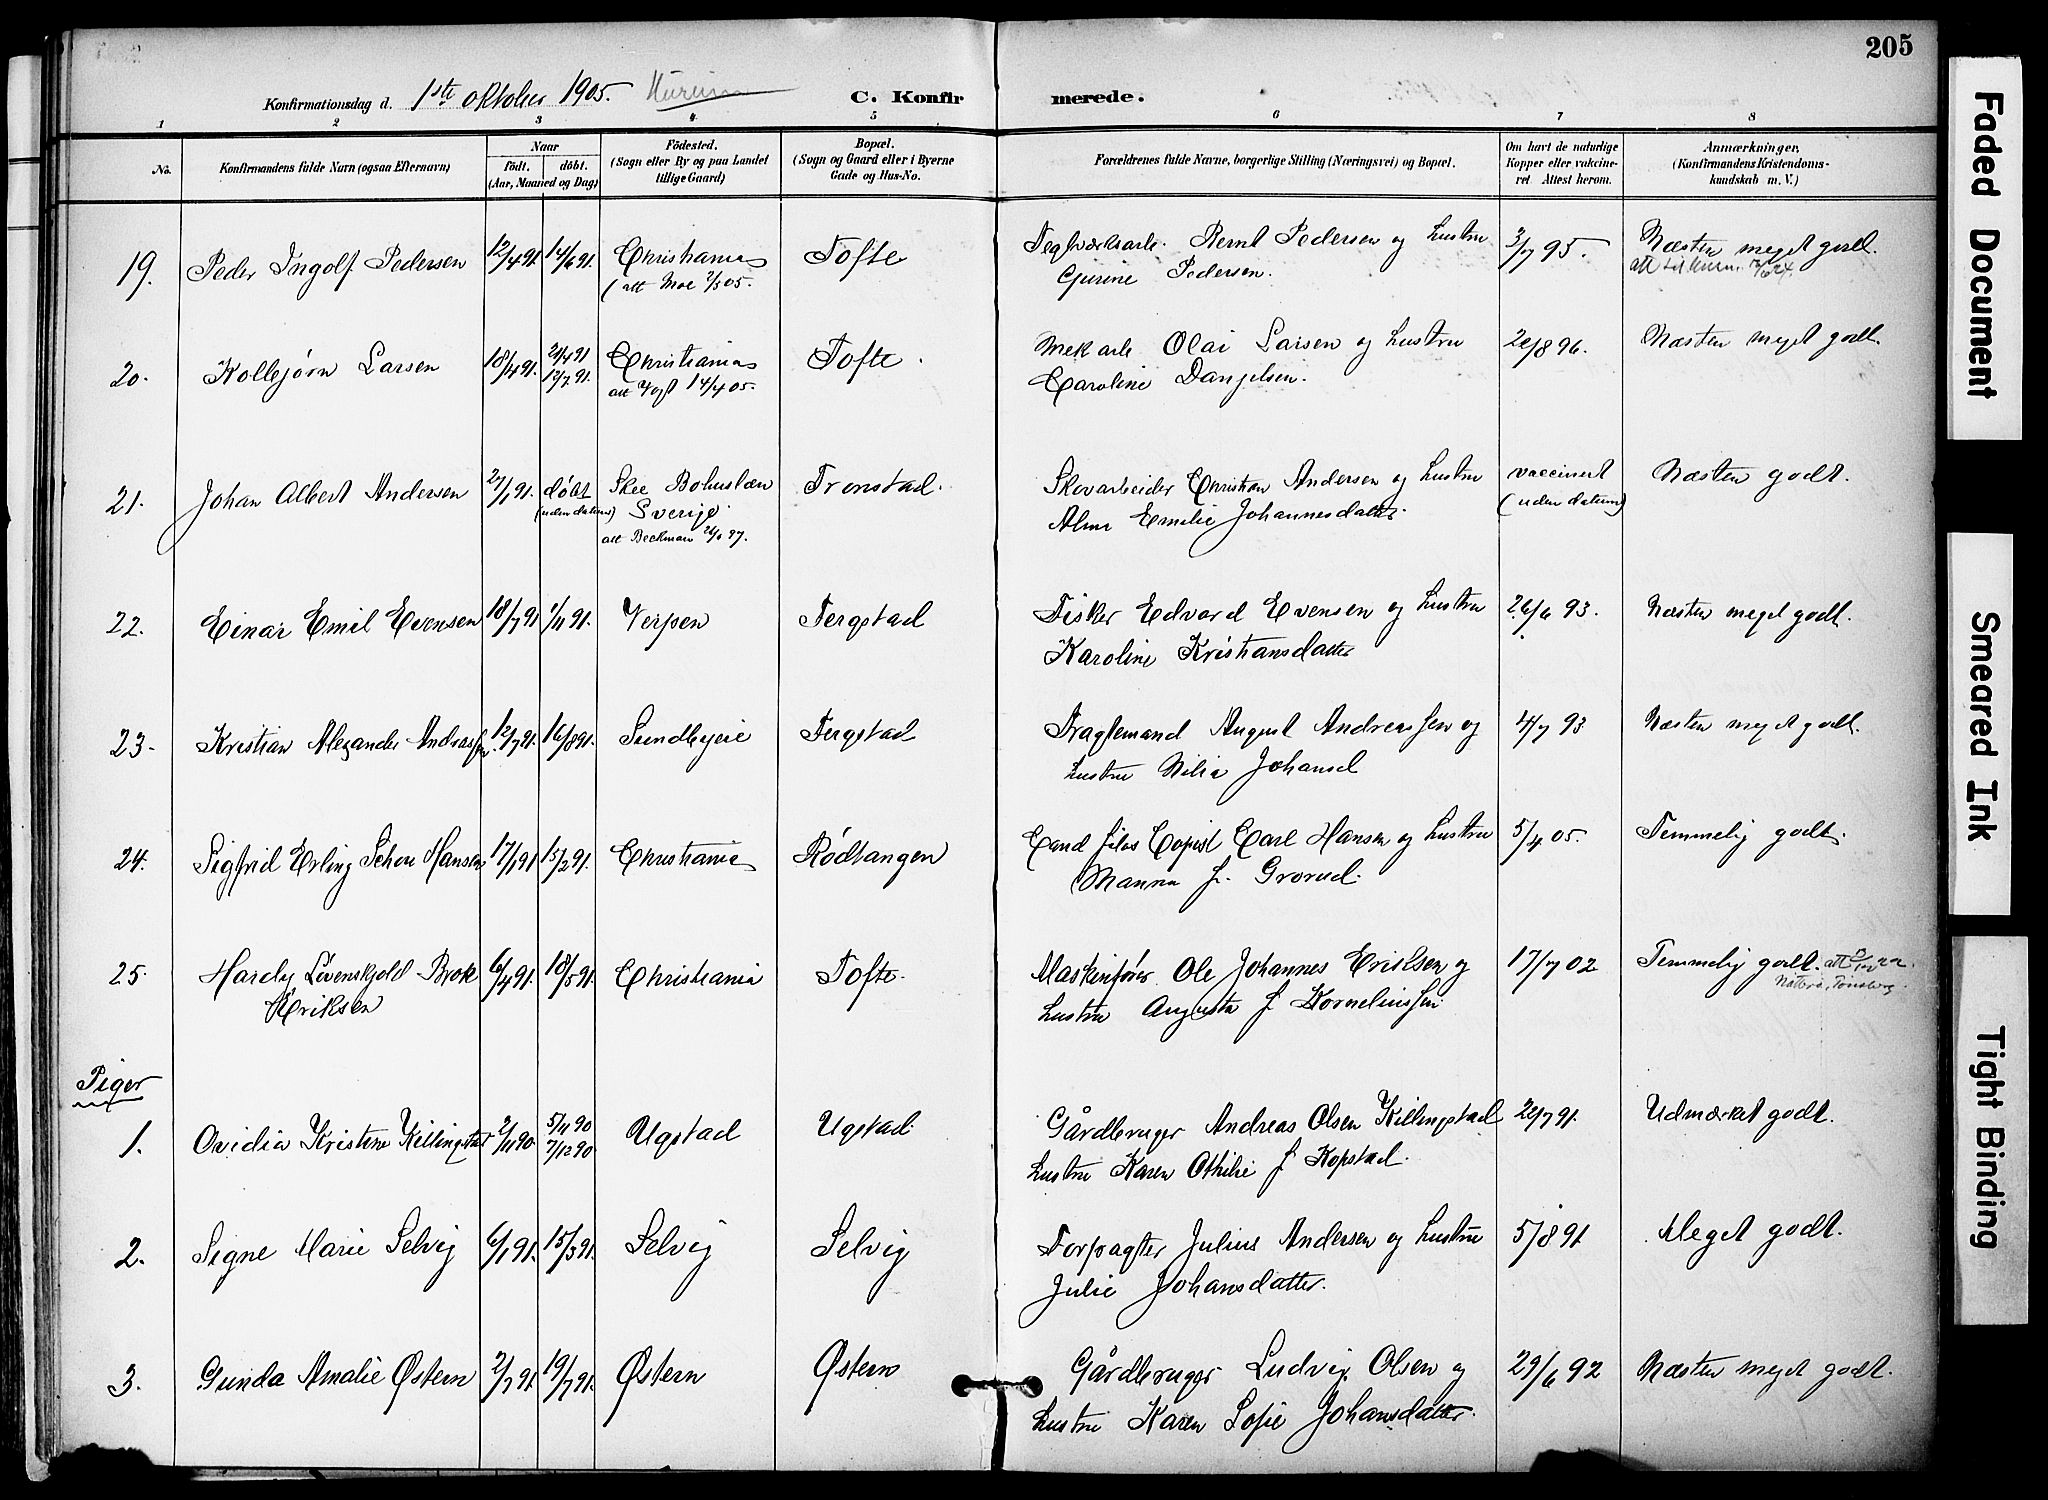 205
Konfirmationsdag d. 1ste oktober 1905. Hurum
C. Konfirmerede.
1 2 3 4 5 6 7 8
No.
Konfirmandens fulde Navn (ogsaa Efternavn)
Naar
födt. döbt.
(Aar, Maaned og Dag)
Födested.
(Sogn eller By og paa Landet
tillige Gaard)
Bopæl.
(Sogn og Gaard eller i Byerne
Gade og Hus-No.
Forældrenes fulde Navne, borgerlige Stilling (Næringsvei) og Bopæl.
Om havt de naturlige
Kopper eller vaccine-
ret Attest herom.
Anmærkninger,
(Konfirmandens Kristendoms-
kundskab m. V.)
19. Peder Ingolf Pedersen 12/4 91. 14/6 91. Christiania Tofte Teglværksarb. Bernt Pedersen og hustru 3/7 95. Næsten meget godt.
(att Moe 2/3 05. Gurine Pedersen.
20. Kollbjørn Larsen 18/4 91. 21/4 91 Christiania Tofte. Mek arb Olai Larsen og hustru 20/8 96. Næsten meget godt.
12/7 91. att Vogt 14/4 05. Caroline Danjelsen.
21. Johan Albert Andersen 27/1 91. døbt Skee Bohuslæn Tronstad. Skovarbeider Christian Andersen og hustru vaccinert Næsten godt.
(uden datum) Sverige. Alma Emilie Johannesdatter. (uden datum)
att Beckman 97.
22. Einar Emil Evensen 18/7 91 1/11 91. Verpen Tergstad Fisker Edvard Evensen og hustru 26/6 93. Næsten meget godt.
Karoline Kristiansdatter
23. Kristian Alexander Andreassen 12/7 91. 16/8 91. Sundbyeie Tergstad Fragtemand August Andreassen og 4/7 93 Næsten meget godt.
hustru Nilia Johansd
24. Sigfrid Erling Schou Hansen 17/1 91 15/2 91. Christiania Rødtangen Cand filos Copist Carl Hansen og hustru 5/4 05. Temmelig godt.
Manna f. Grorud.
25. Hardy Løvenskjold Brok 6/4 91. 18/5 91. Christiania Tofte. Maskinfører Ole Johannes Eriksen og 17/7 02 Temmelig godt.
Eriksen hustru Augusta f Korneliussen.
Piger
1. Ovidia Kristine Killingstad 2/11 90. 5/11 90 Ugstad Ugstad. Gårdbruger Andreas Olsen Killingstad 22/7 91. Udmærket godt.
7/12 90. hustru Karen Othilie f Kopstad.
2. Signe Marie Selvig 6/1 91. 15/3 91. Selvig Selvig Forpagter Julius Andersen og hustru 5/8 91 Meget godt.
Julie Johansdatter.
3. Gunda Amalie Østern 2/7 91. 19/7 91. Østern Østern Gårdbruger Ludvig Olsen og 29/6 92 Næsten meget godt.
hustru Karen Sofie Johansdatter.
Faded Document
Smeared Ink
Tight Binding